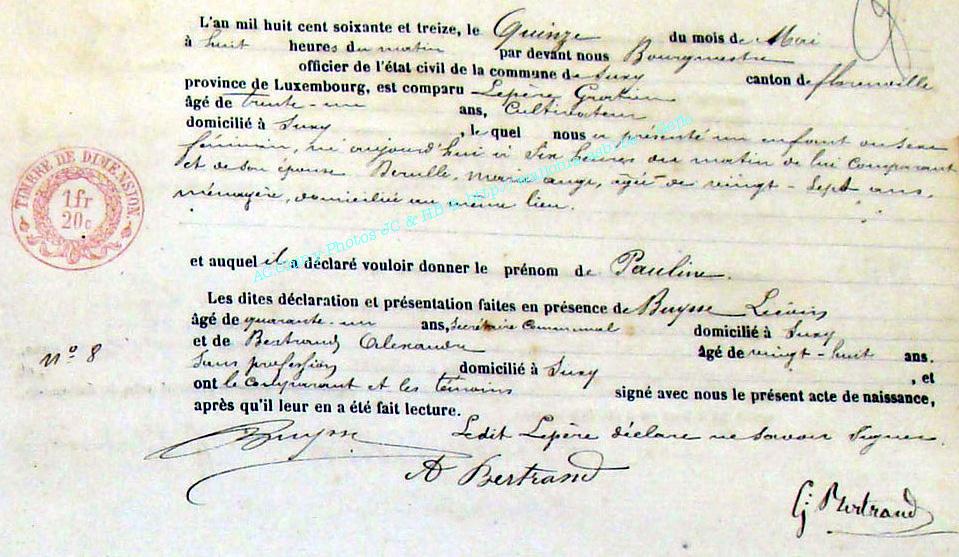 L'an mil huit cent soixante et treize, le Quinze du mois de Mai
à huit heures du matin par devant nous Bourgmestre
officier de l'état civil de la commune de Suxy canton de florenville
province de Luxembourg, est comparu Lepère Gratien
âgé de trente-un ans, Cultivateur
domicilié à Suxy, le quel nous a présenté un enfant du sexe
féminin, né aujourd'hui à six heures du matin de lui comparant
et de son épouse, marie ange, âgée de vingt-sept ans
ménagère, domiciliée au même lieu.
TIMBRE DE DIMENSION.
1 fr
20c
et auquel il a déclaré vouloir donner le prénom de Pauline.
Les dites déclaration et présentation faites en présence de Buysse
âgé de quarante-un ans, Secrétaire Communal domicilié à Suxy
et de Bertrand Alexandre âgé de vingt-huit ans.
Sans profession domicilié à Suxy, et
n° 8
ont le comparant et les témoins signé avec nous le présent acte de naissance,
après qu'il leur en a été fait lecture.
Buysse Ledit Lepère déclare ne savoir signer.
A Bertrand
G Bertrand
Photos JC & HB